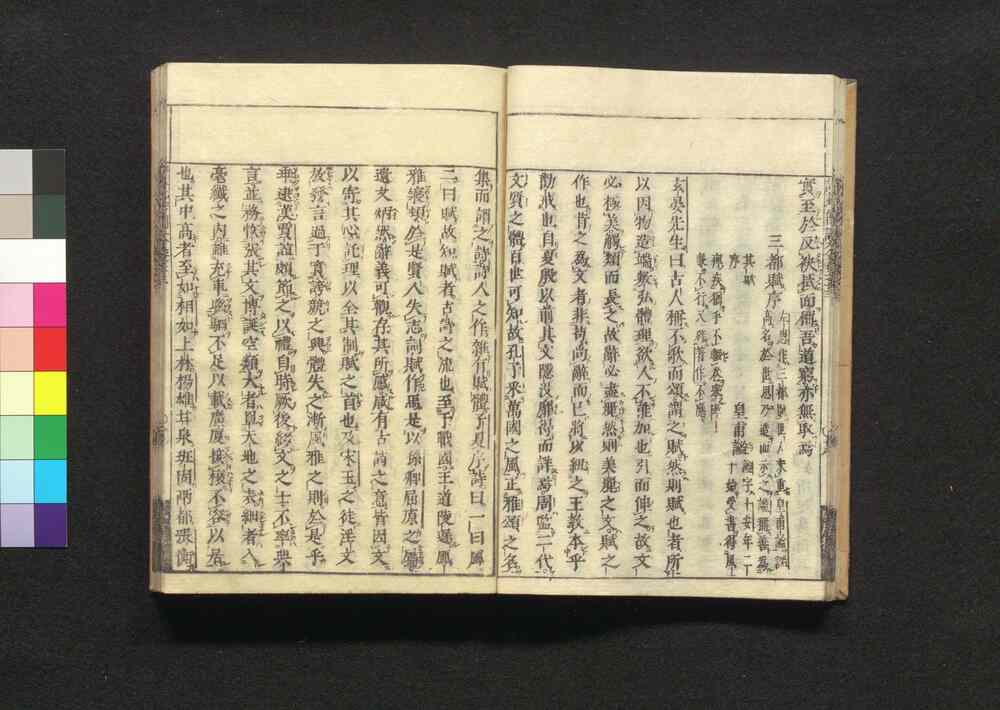 實至於反袂拭面稱吾道窮亦無取焉
三都賦序
左思作三都賦世人未重皇甫謐
有高名於世思乃造而示之謐稱善為
其賦
序
皇甫謐
謐字士安年二
十始受書得風
痺疾猶手不輟
玄晏先生曰古人稱不歌而頌謂之賦然則賦也者所
以因物造端敷弘體理欲人不能加也引而伸之故文
必極美觸類而長之故辭必盡麗然則美麗之文賦之
作也昔之為文者非苟尚辭而已將以紐之王教本乎
勸戒也自夏殷以前其文隱沒靡得而詳焉周監二代
文質之體百世可知故孔子采萬國之風正雅頌之名
集而謂之詩詩人之作雜有賦體子夏序詩曰一曰風
二曰賦故知賦者古詩之流也至于戰國王道陵遲風
雅寖頓於是賢人失志詞賦作焉是以孫卿屈原之屬
遺文炳然辭義可觀存其所感咸有古詩之意皆因文
以寄其心託理以全其制賦之首也及宋玉之徒淫文
放發言過于實誇競之興體失之漸風雅之則於是乎
乖逮漢賈誼頗節之以禮自時厥後綴文之士不率典
言並務恢張其文博誕空類大者罩天地之表細者入
毫纖之內雖充車聯駟不足以載廣廈接榱不容以居
也其中高者至如相如上林楊雄甘泉班固兩都張衡